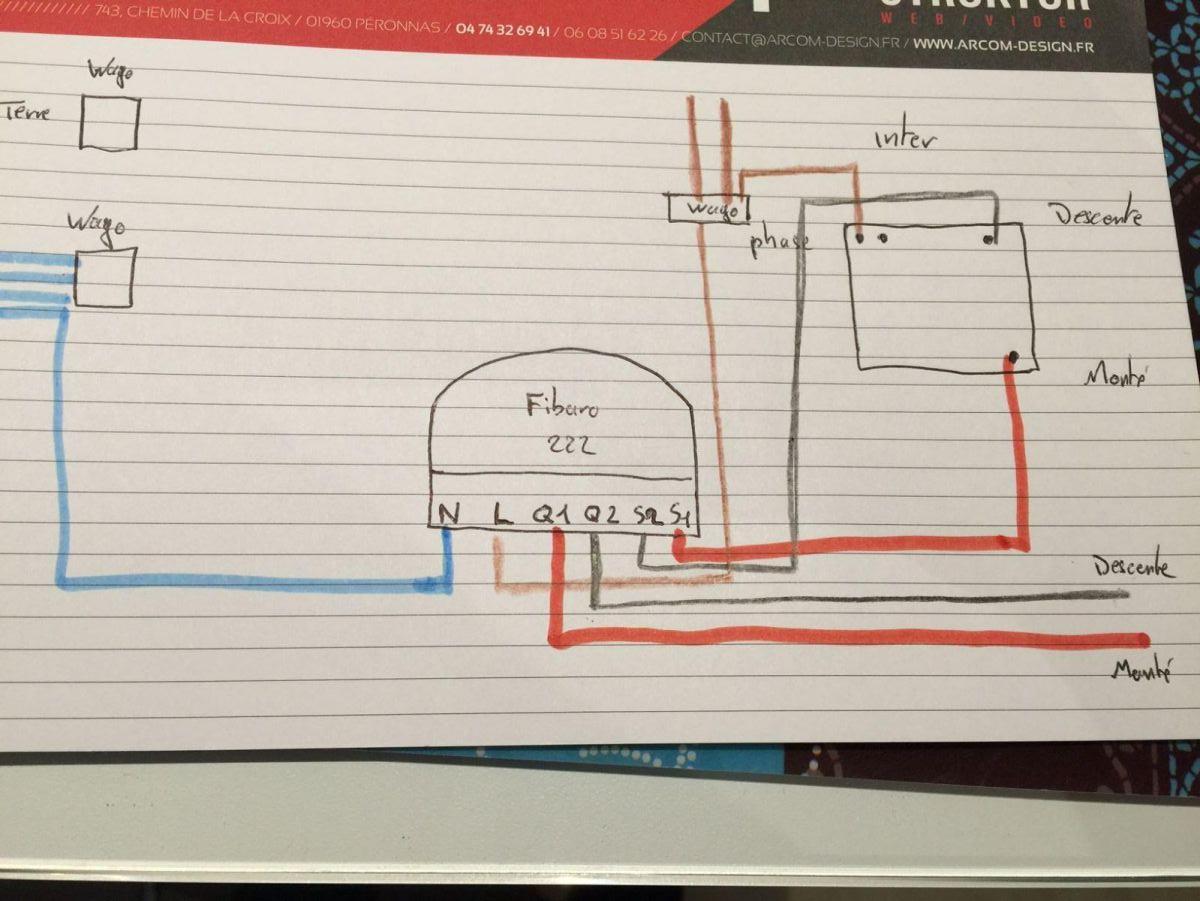 STRUKTUR
WEB/VIDEO
//////////// 743, CHEMIN DE LA CROIX / 01960 PÉRONNAS / 04 74 32 69 41 / 06 08 51 62 26 / CONTACT@ARCOM-DESIGN.FR / WWW.ARCOM-DESIGN.FR
Wago
Terre
inter
Wago
wago
Descente
phase
Monté
Fibaro
222
N L Q1 Q2 S2 S1
Descente
Monté